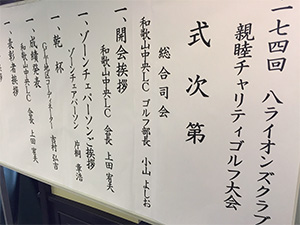 一七四回 八ライオンズクラブ
親睦チャリティゴルフ大会
式次第
総合司会
和歌山中央LC ゴルフ部長 小山よしお
一、開会挨拶
和歌山中央LC 会長 上田宥美
一、ゾーンチェアパーソンご挨拶
ゾーンチェアパーソン 片桐章浩
一、乾杯
吉村弘吉
一、成績発表
和歌山中央LC 会長 上田宥美
一、表彰者挨拶